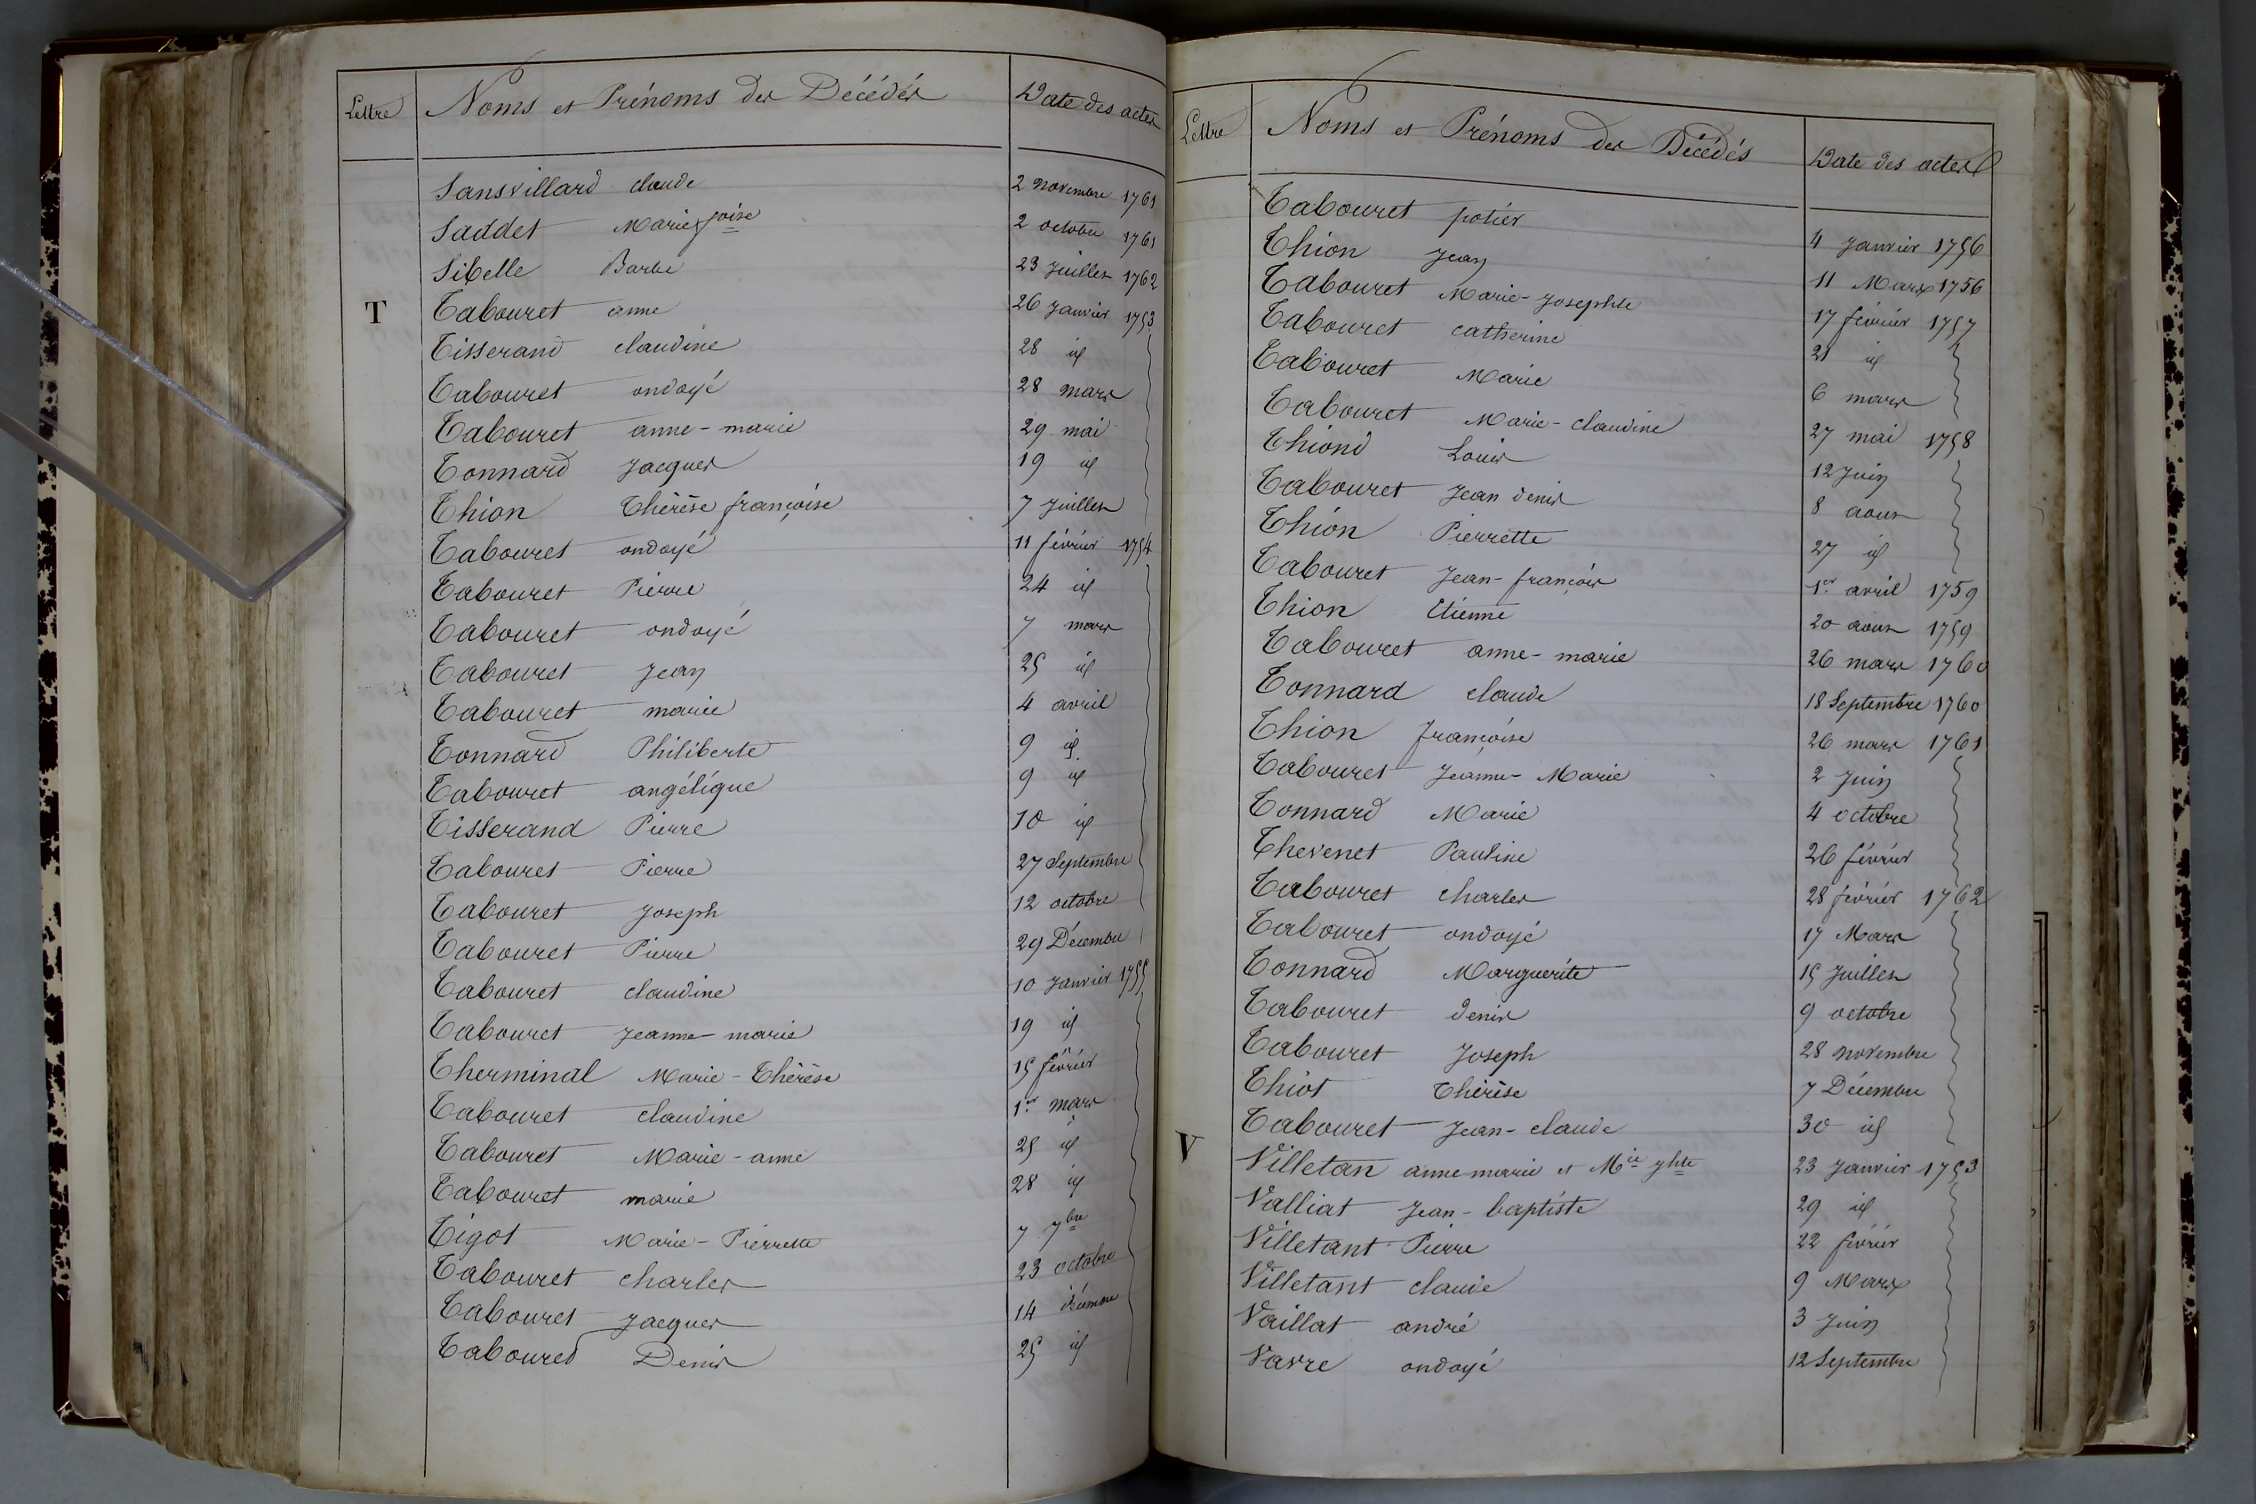 Lettre Noms et Prénoms des Décédés Date des actes
Sansvillard claude 2 novembre 1761
Saddet Marie foise 2 octobre 1761
Sibelle Barbe 23 Juillet 1762
T Tabouret anne 26 Janvier 1753
Tisserand claudine 28 id
Tabouret ondoyé 28 mars
Tabouret anne-marie 29 mai
Tonnard Jacques 19 id
Thion Thérèse françoise 7 Juillet
Tabouret ondoyé 11 février 1754
Tabouret Pierre 24 id
Tabouret ondoyé 7 mars
Tabouret Jean 25 id
Tabouret marie 4 avril
Tonnard Philiberte 9 id
Tabouret angélique 9 id
Tisserand Pierre 10 id
Tabouret Pierre 27 Septembre
Tabouret Joseph 12 octobre
Tabouret Pierre 29 Décembre
Tabouret claudine 10 Janvier 1755
Tabouret Jeanne-marie 19 id
Therminal Marie-Thérèse 15 février
Tabouret claudine 1er mars
Tabouret Marie-anne 25 id
Tabouret marie 28 id
Tigot Marie-Pierrette 7 7bre
Tabouret charles 23 octobre
Tabouret Jacques 14 décembre
Tabouret Denis 25 id
Lettre Noms et Prénoms des Décédés Date des actes
Tabouret potier 4 Janvier 1756
Thion Jean 11 Mars 1756
Tabouret Marie-Josephte 17 février 1757
Tabouret catherine 21 id
Tabouret Marie 6 mars
Tabouret Marie-claudine 27 mai 1758
Thiond Louis 12 Juin
Tabouret Jean denis 8 aout
Thion Pierrette 27 id
Tabouret Jean-françois 1er avril 1759
Thion Etienne 20 aout 1759
Tabouret anne-marie 26 mars 1760
Tonnard claude 18 Septembre 1760
Thion françoise 26 mars 1761
Tabouret Jeanne-Marie 2 Juin
Tonnard Marie 4 octobre
Thevenet Pauline 26 février
Tabouret charles 28 février 1762
Tabouret ondoyé 17 Mars
Tonnard Marguerite 15 Juillet
Tabouret denis 9 octobre
Tabouret Joseph 28 novembre
Thiot Thérèse 7 Décembre
Tabouret Jean-claude 30 id
V Villetan anne-marie et Mie Jhte 23 Janvier 1753
Valliat Jean-baptiste 29 id
Villetant Pierre 22 février
Villetant claude 9 Mars
Vaillat andré 3 Juin
Vavre ondoyé 12 Septembre